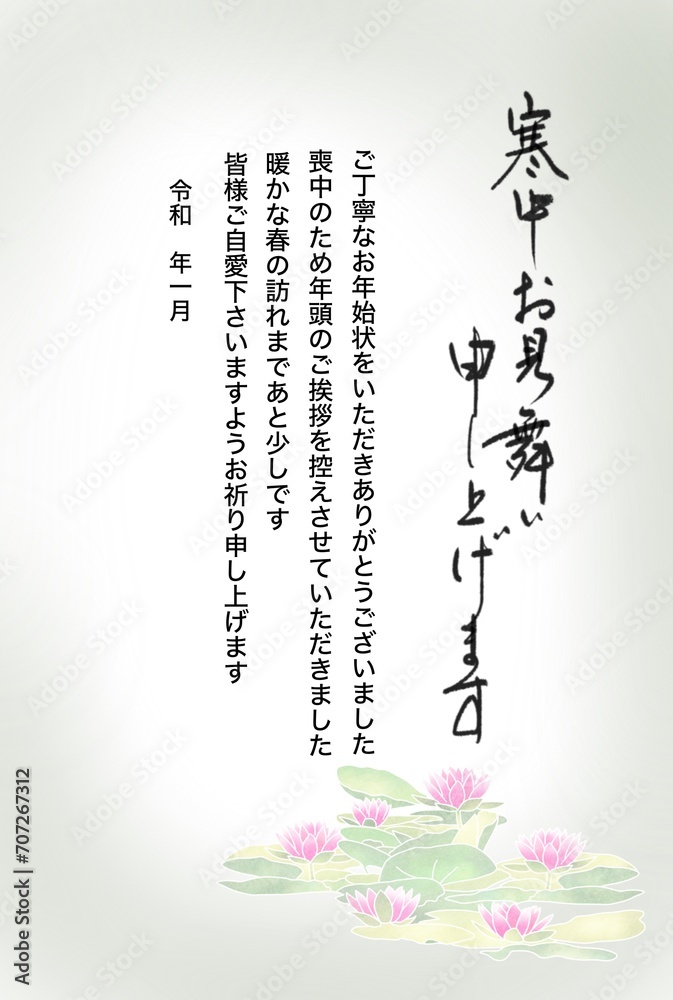 寒中お見舞い
申し上げます
ご丁寧なお年始状をいただきありがとうございました
喪中のため年頭のご挨拶を控えさせていただきました
暖かな春の訪れまであと少しです
皆様ご自愛下さいますようお祈り申し上げます
令和　年一月
Adobe Stock | #707267312